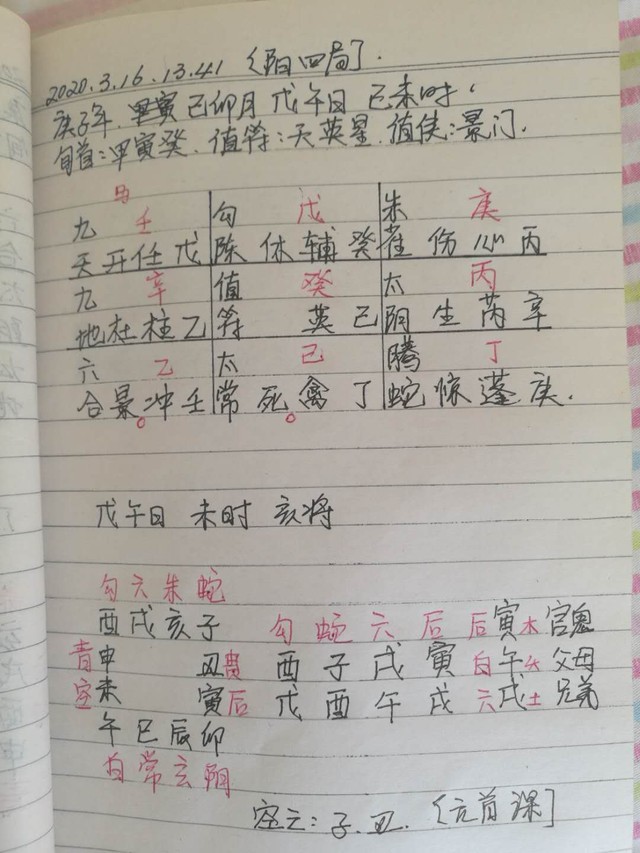 2020.3.16.13.41 〔阳四局〕.
庚子年.己卯月 戊午日 己未时.
旬首:甲寅癸.值符:天英星.值使:景门.
马
九 壬 勾 戊 朱 庚
天开任戊 陈休辅癸 雀伤心丙
九 辛 值 癸 太 丙
地杜柱乙 符 英己 阴生芮辛
六 乙 太 己 腾 丁
合景冲壬 常死禽丁 蛇惊蓬庚.
戊午日 未时 亥将
勾六朱蛇
酉戌亥子 勾 蛇 六 后 后寅木官鬼
青申 丑贵 酉 子 戌 寅 白午火父母
空未 寅后 戊 酉 午 戌 六戌土兄弟
午巳辰卯
白常玄阴
空亡:子.丑.〔元首课〕